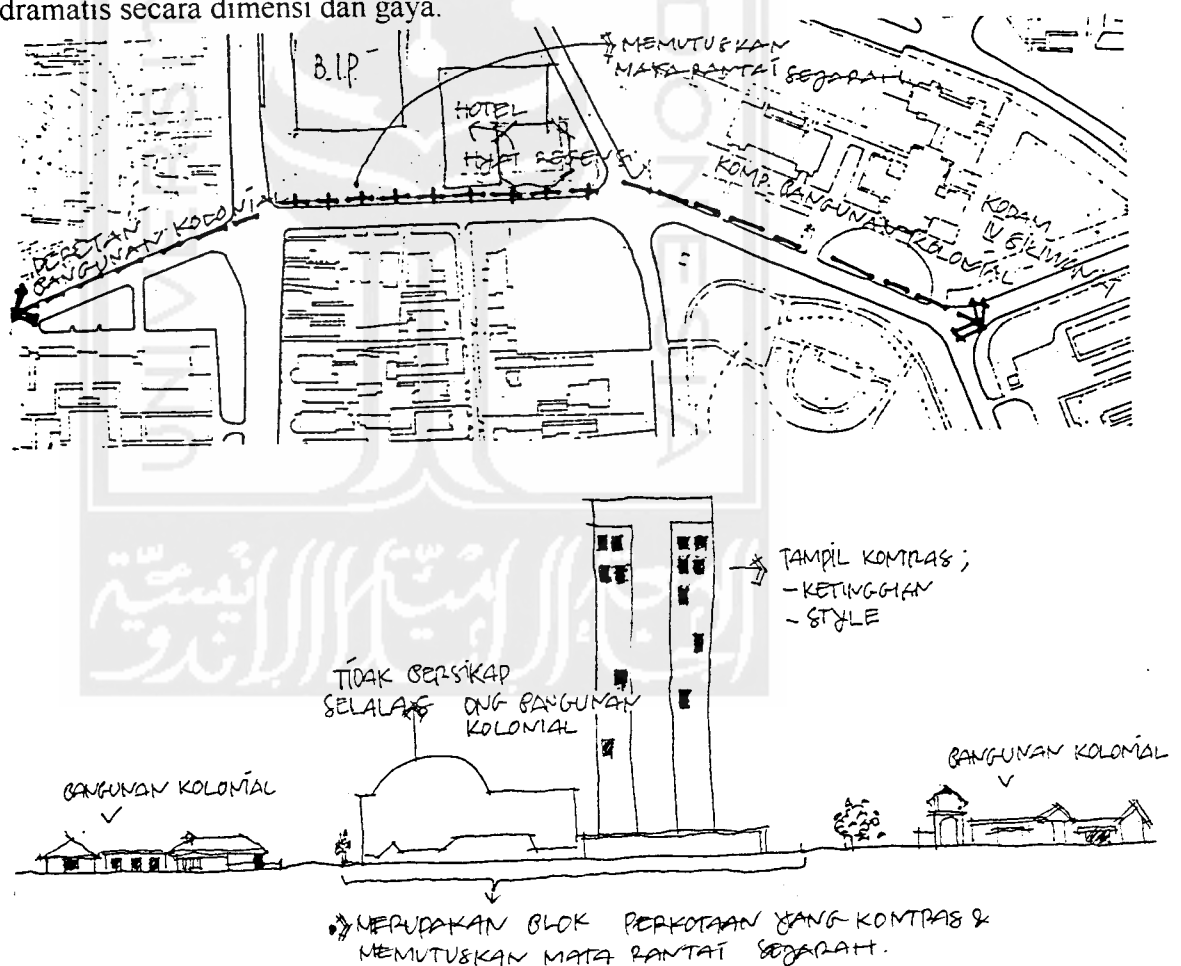 dramatis secara dimensi dan gaya.
B.I.P
HOTEL
MEMUTUSKAN
MAKA RANTAI SEJARAH
DERETAN
BANGUNAN KOLONIAL
KOMP. BANGUNAN KOLONIAL
KODAM
IV SILIWANGI
TAMPIL KONTRAS ;
- KETINGGIAN
- STYLE
TIDAK BERSIKAP
SELALAS DNG BANGUNAN
KOLONIAL
BANGUNAN KOLONIAL
BANGUNAN KOLONIAL
MERUPAKAN BLOK PERKOTAAN YANG KONTRAS &
MEMUTUSKAN MATA RANTAI SEJARAH.